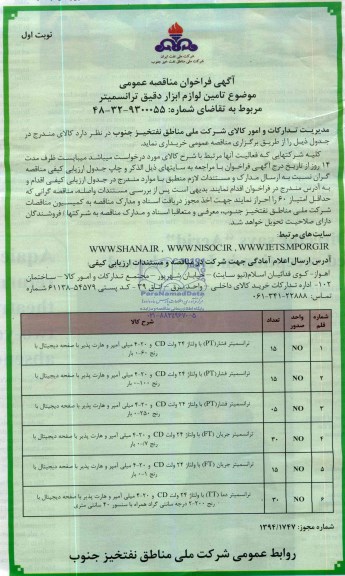 نوبت اول
شرکت ملی نفت ایران
شرکت ملی مناطق نفت خیز جنوب
آگهی فراخوان مناقصه عمومی
موضوع تامین لوازم ابزار دقیق ترانسمیتر
مربوط به تقاضای شماره: ۹۳۰۰۰۵۵-۳۲-۴۸
مدیریت تدارکات و امور کالای شرکت ملی مناطق نفتخیز جنوب در نظر دارد کالای مندرج در
جدول ذیل را از طریق برگزاری مناقصه عمومی خریداری نماید.
کلیه شرکتهایی که فعالیت آنها مرتبط با شرح کالای مورد درخواست میباشد میبایست ظرف مدت
۱۴ روز از تاریخ درج آگهی فراخوان با مراجعه به سایتهای ذیل الذکر و چاپ جدول ارزیابی کیفی مناقصه
گران نسبت به ارسال مدارک و مستندات لازم منطبق با موارد مندرج در جدول ارزیابی کیفی اقدام و
به آدرس مندرج در فراخوان اقدام نمایند. بدیهی است پس از بررسی مستندات واصله مناقصه گرانی که
حداقل امتیاز ۶۰ را احراز نمایند جهت اخذ مجوز دریافت اسناد و مدارک مناقصه به کمیسیون مناقصات
شرکت ملی مناطق نفتخیز جنوب، معرفی و متعاقبا اسناد و مدارک مناقصه به شرکتها / فروشندگان
دارای صلاحیت تحویل خواهد شد.
سایت های مرتبط:
WWW.SHANA.IR , WWW.NISOC.IR , WWW.IETS.MPORG.IR
آدرس ارسال اعلام آمادگی جهت شرکت در مناقصه و مستندات ارزیابی کیفی
اهواز- کوی فدائیان اسلام (نیو سایت) – خیابان شهریور – مجتمع تدارکات و امور کالا – ساختمان
۱۰۲- اداره تدارکات خرید کالای داخلی ( واحد برق – اتاق ۳۹- کد پستی ۵۴۵۷۹-۶۱۱۳۸ شماره
تماس: ۲۲۸۸۸-۰۶۱-۳۴۱
ParsNamadData
شماره قلم | واحد صدور | تعداد | شرح کالا
۱ | NO | ۱۵ | ترانسمیتر فشار(PT) با ولتاژ ۲۴ ولت CD و ۲۰-۴ میلی آمپر و هارت پذیر با صفحه دیجیتال با رنج ۶۰-۰ بار
۲ | NO | ۱۵ | ترانسمیتر فشار(PT) با ولتاژ ۲۴ ولت CD و ۲۰-۴ میلی آمپر و هارت پذیر با صفحه دیجیتال با رنج ۱۰۰-۰ بار
۳ | NO | ۰۵ | ترانسمیتر فشار(PT) با ولتاژ ۲۴ ولت CD و ۲۰-۴ میلی آمپر و هارت پذیر با صفحه دیجیتال با رنج ۲۵۰-۰ بار
۴ | NO | ۳۰ | ترانسمیتر جریان (FT) با ولتاژ ۲۴ ولت CD و ۲۰-۴ میلی آمپر و هارت پذیر با صفحه دیجیتال با رنج ۰/۷-۰ بار
۵ | NO | ۱۵ | ترانسمیتر جریان (FT) با ولتاژ ۲۴ ولت CD و ۲۰-۴ میلی آمپر و هارت پذیر با صفحه دیجیتال با رنج ۱-۰ بار
۶ | NO | ۳۰ | ترانسمیتر دما (TT) با ولتاژ ۲۴ ولت CD و ۲۰-۴ میلی آمپر و هارت پذیر با صفحه دیجیتال با رنج ۲۰۰-۲۰ درجه سانتی گراد همراه با سنسور ۴۰ سانتی متری
شماره مجوز: ۱۳۹۴/۱۷۴۷
روابط عمومی شرکت ملی مناطق نفتخیز جنوب